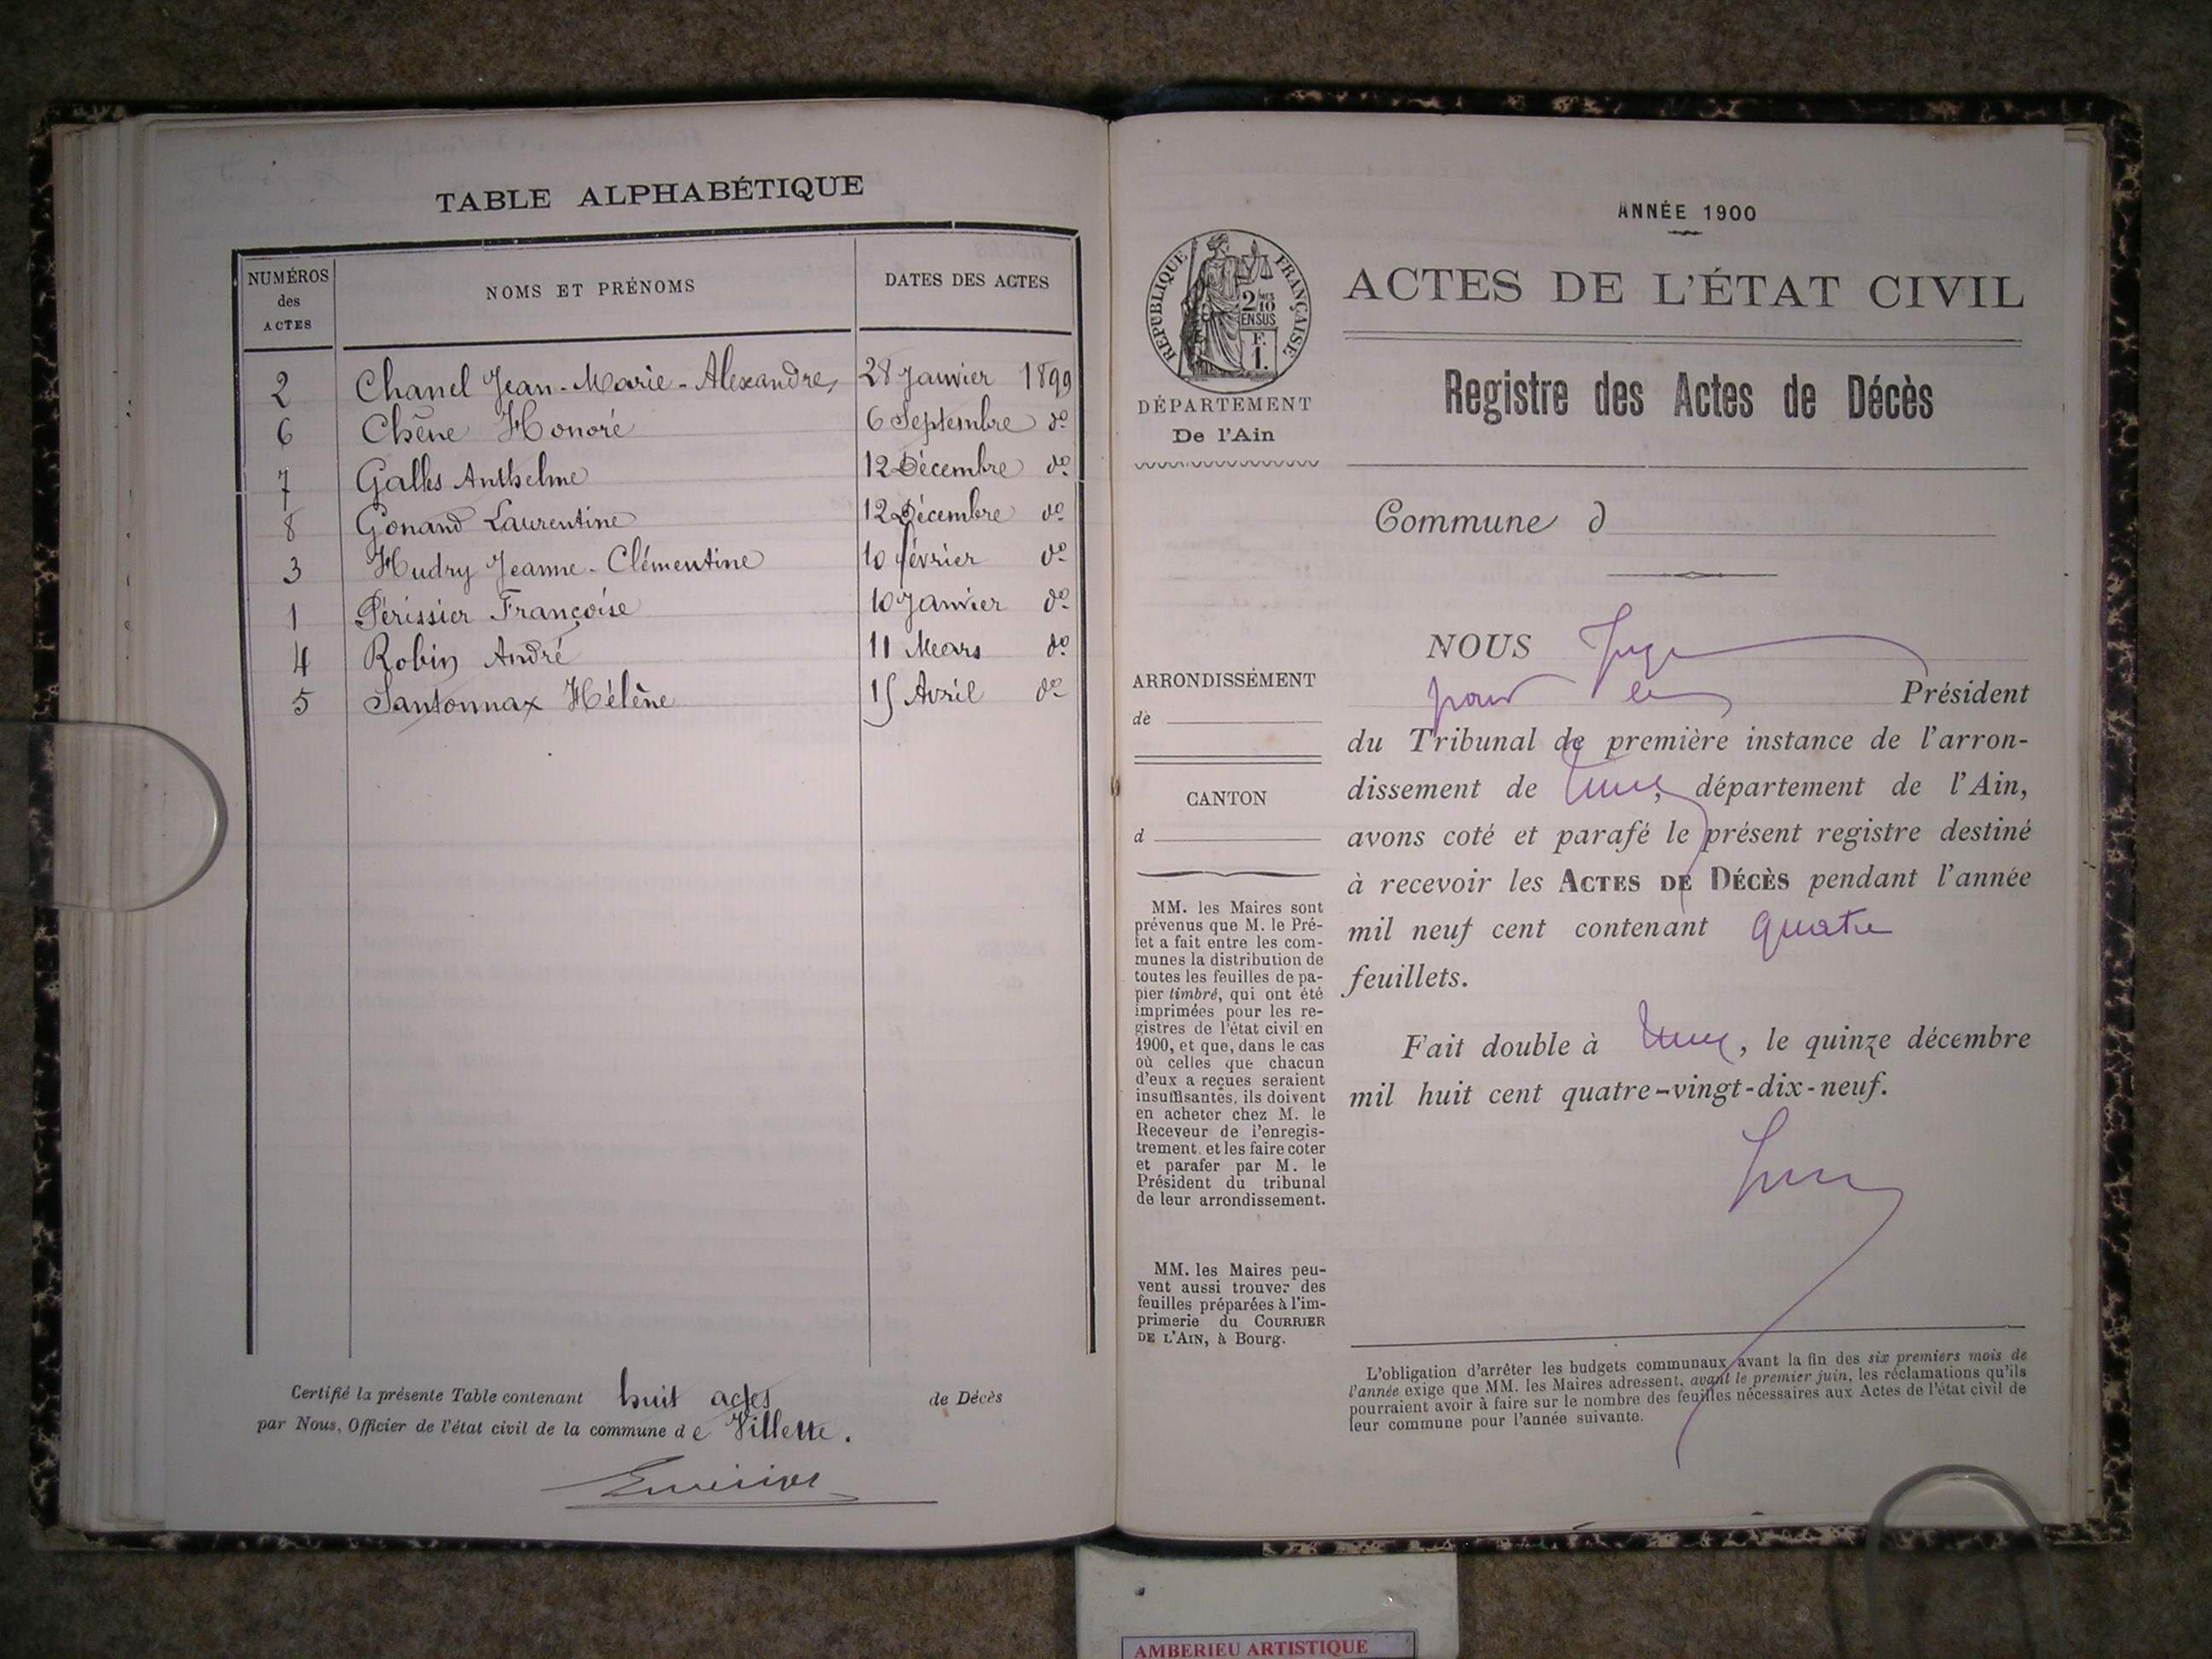 TABLE ALPHABÉTIQUE
NUMÉROS des ACTES
NOMS ET PRÉNOMS
DATES DES ACTES
2 Chanel Jean-Marie-Alexandre 28 Janvier 1899
6 Chêne Honoré 6 Septembre do
7 Galles Anthelme 12 Décembre do
8 Gonand Laurentine 12 Décembre do
3 Hudry Jeanne-Clémentine 10 février do
1 Périssier Françoise 10 Janvier do
4 Robin André 11 Mars do
5 Santonnax Hélène 15 Avril do
Certifié la présente Table contenant huit actes de Décès
par Nous, Officier de l'état civil de la commune de Villette.
ANNÉE 1900
RÉPUBLIQUE FRANÇAISE
2 MES
10
EN SUS
F.
1.
DÉPARTEMENT
De l'Ain
ARRONDISSEMENT
de
CANTON
d
MM. les Maires sont
prévenus que M. le Pré-
fet a fait entre les com-
munes la distribution de
toutes les feuilles de pa-
pier timbré, qui ont été
imprimées pour les re-
gistres de l'état civil en
1900, et que, dans le cas
où celles que chacun
d'eux a reçues seraient
insuffisantes, ils doivent
en acheter chez M. le
Receveur de l'enregis-
trement, et les faire coter
et parafer par M. le
Président du tribunal
de leur arrondissement.
MM. les Maires peu-
vent aussi trouver des
feuilles préparées à l'im-
primerie du COURRIER
DE L'AIN, à Bourg.
ACTES DE L'ÉTAT CIVIL
Registre des Actes de Décès
Commune d
NOUS Juge
pour le Président
du Tribunal de première instance de l'arron-
dissement de , département de l'Ain,
avons coté et parafé le présent registre destiné
à recevoir les ACTES DE DÉCÈS pendant l'année
mil neuf cent contenant quatre
feuillets.
Fait double à , le quinze décembre
mil huit cent quatre-vingt-dix-neuf.
L'obligation d'arrêter les budgets communaux avant la fin des six premiers mois de
l'année exige que MM. les Maires adressent, avant le premier juin, les réclamations qu'ils
pourraient avoir à faire sur le nombre des feuilles nécessaires aux Actes de l'état civil de
leur commune pour l'année suivante.
AMBERIEU ARTISTIQUE